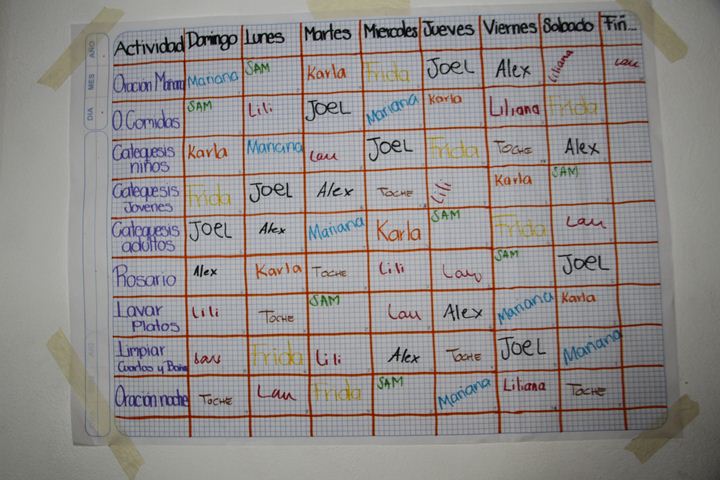 Actividad Domingo Lunes Martes Miercoles Jueves Viernes Sabado Fiñ...
Oración Mañana Mariana SAM Karla Frida JOEL Alex Liliana Lau
O.Comidas SAM Lili JOEL Mariana Karla Liliana Frida
Catequesis niños Karla Mariana Lau JOEL Frida TOCHE Alex
Catequesis Jovenes Frida JOEL Alex TOCHE Lili Karla SAM
Catequesis adultos JOEL Alex Mariana Karla SAM Frida Lau
Rosario Alex Karla TOCHE Lili Lau SAM JOEL
Lavar Platos Lili TOCHE SAM Lau Alex Mariana Karla
Limpiar Cuartos y Baño Lau Frida Lili Alex TOCHE JOEL Mariana
Oración noche TOCHE Lau Frida SAM Mariana Liliana TOCHE
DIA MES AÑO